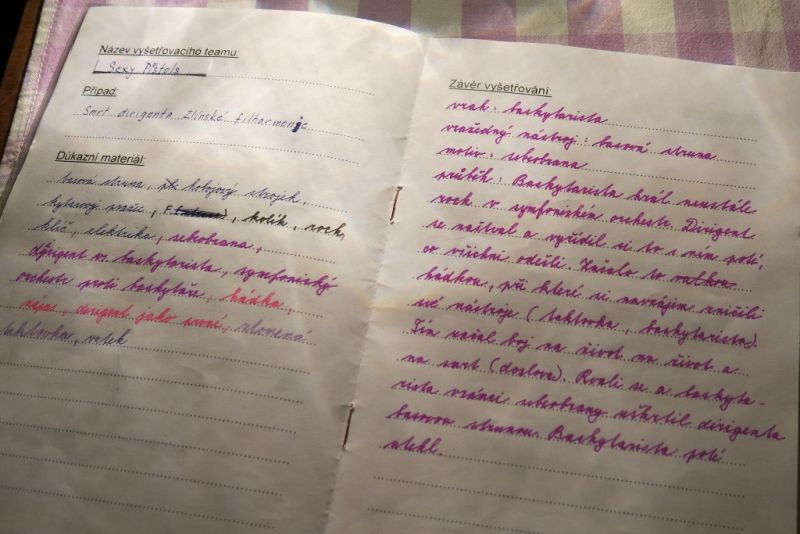 Název vyšetřovacího teamu:
Sexy Pistols
Případ:
Smrt dirigenta Zlínské filharmonie
Důkazní materiál:
basová struna, kolejový strojek,
kytarový pražec, kolík, rock,
klíč, elektrika, sebobrana,
dirigent vs baskytarista, symfonický
orchestr proti baskytaře, hádka,
zápas, dirigent jako první, zlomená
taktovka, vztek
Závěr vyšetřování:
vrah: baskytarista
vražedný nástroj: basová struna
motiv: sebobrana
průběh: Baskytarista hrál neustále
rock v symfonickém orchestru. Dirigent
se naštval a vyřídil si to s ním poté,
co všichni odešli. Začalo to velkou
hádkou, při které si navzájem zničili
své nástroje (taktovka, baskytarista).
Tím začal boj na život na život a
na smrt (doslova). Rvali se a baskyta-
rista v rámci sebobrany uškrtil dirigenta
basovou strunou. Baskytarista poté
utekl.